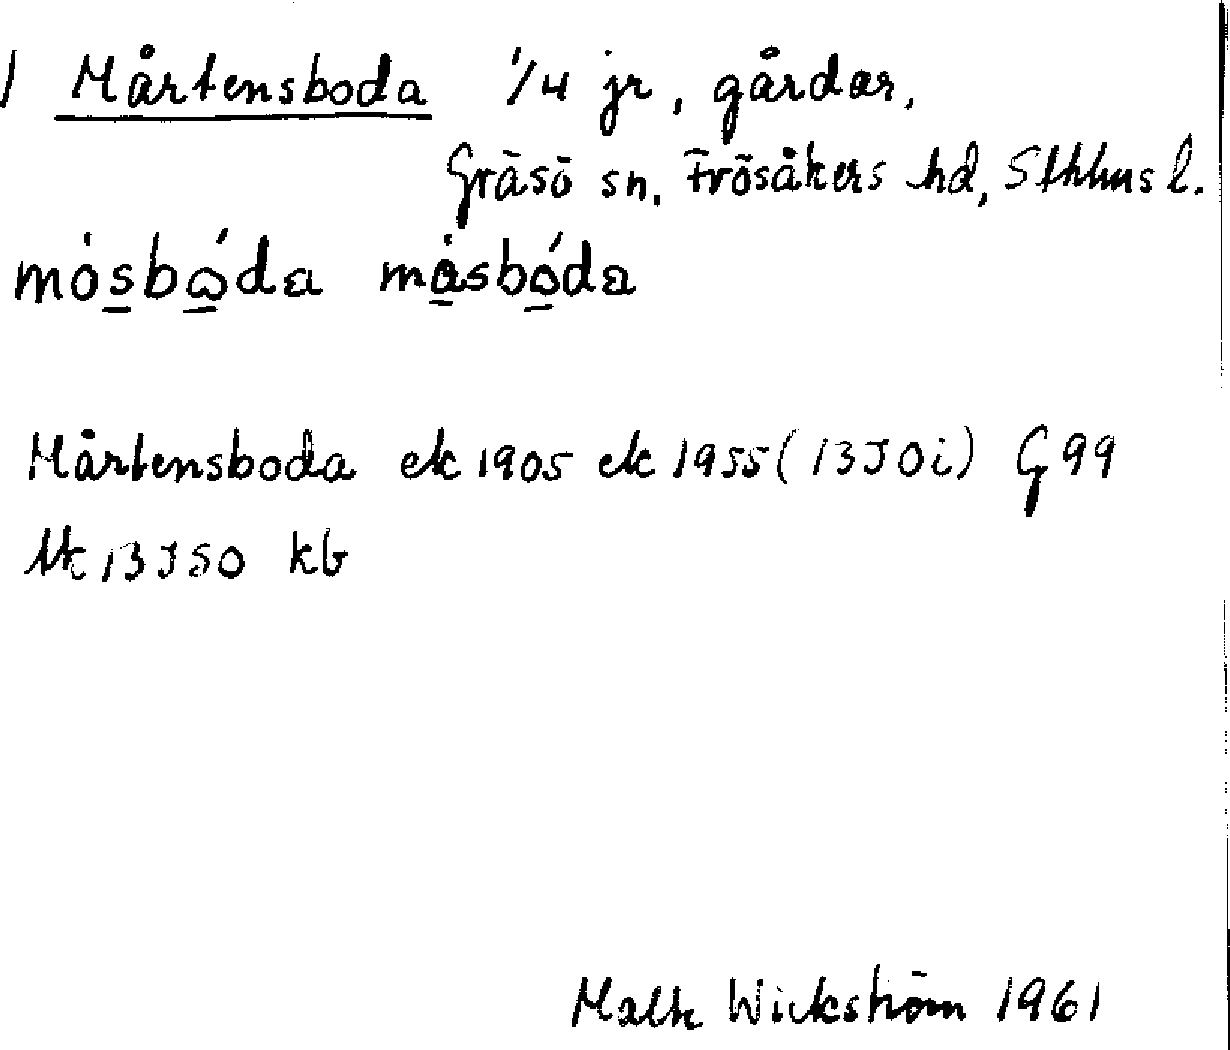 1 Mårtensboda 1/4 jr, gårdar,
Gräsö sn. Frösåkers hd, Sthlms l.
mósbåda måsbóda
Mårtensboda ek 1905 ek 1955 (13J0i) G 99
13J50 kb
Malte Wickström 1961